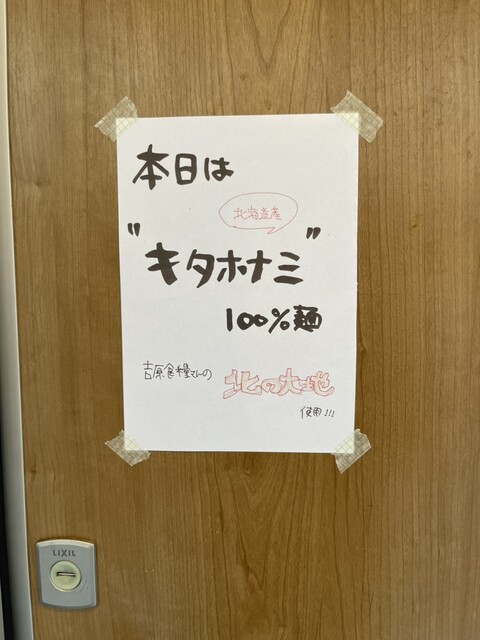 本日は
北海道産
"キタホナミ"
100%麺
吉原食糧さんの
北の大地
使用!!!
LIXIL